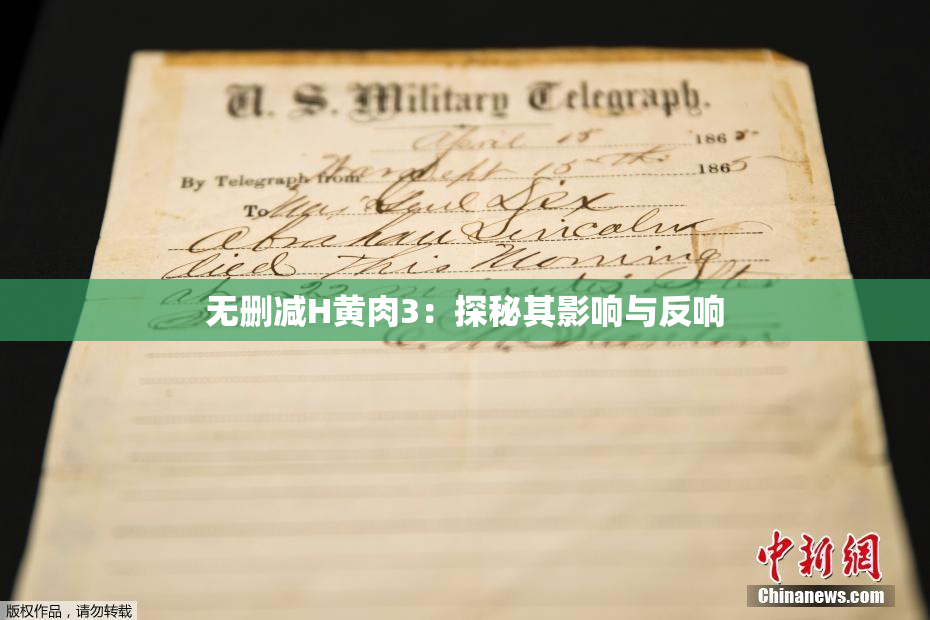 U. S. Military Telegraph.
April 15 1865
By Telegraph from War Dept 15th 1865
To Maj Genl Dix
Abraham Lincoln
died This Morning
at 22 minutes after
无删减H黄肉3：探秘其影响与反响
E. M. Stanton
中新网
Chinanews.com
版权作品，请勿转载